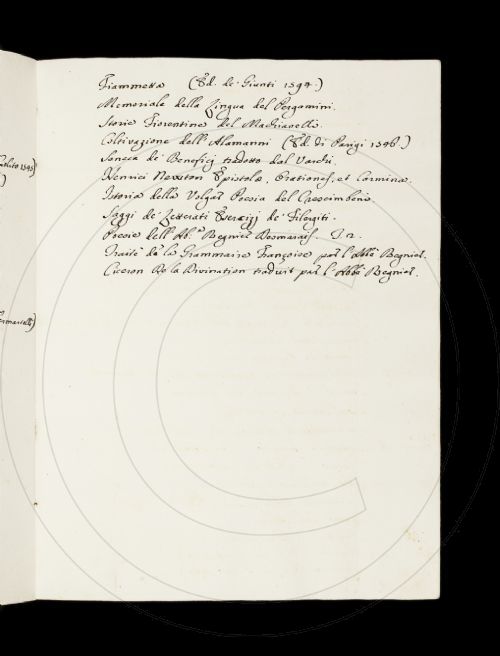 Fiammetta (Ed. de' Giunti 1594.)
Memoriale della Lingua del Pergamini.
Storie Fiorentine del Machiavelli.
Coltivazione dell' Alamanni (Ed. di Parigi 1546.)
Seneca de' Benefizj tradotto dal Varchi.
Henrici Newton Epistolæ, Orationes, et Carmina.
Istoria della Volgar Poesia del Crescimbeni.
Saggi de' Letterati Esercizj de' Filergiti.
Poesie dell' Ab.e Regnier Desmarais. T. 2.
Traité de la Grammaire Françoise par l'Abbé Regnier.
Ciceron De la Divination traduit par l'Abbé Regnier.
1545)
)